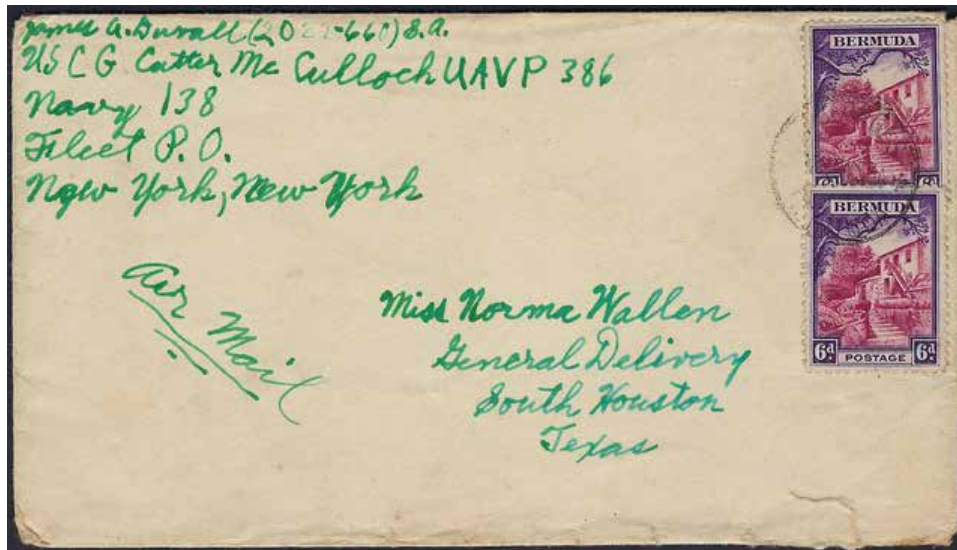 James A. Duvall (2021-660) S.A.
US C G Cutter Mc Culloch UAVP 386
Navy 138
Fleet P.O.
Ngew York, New York
Air Mail
Miss Norma Wallen
General Delivery
South Houston
Texas
BERMUDA
6d 6d
BERMUDA
6d POSTAGE 6d